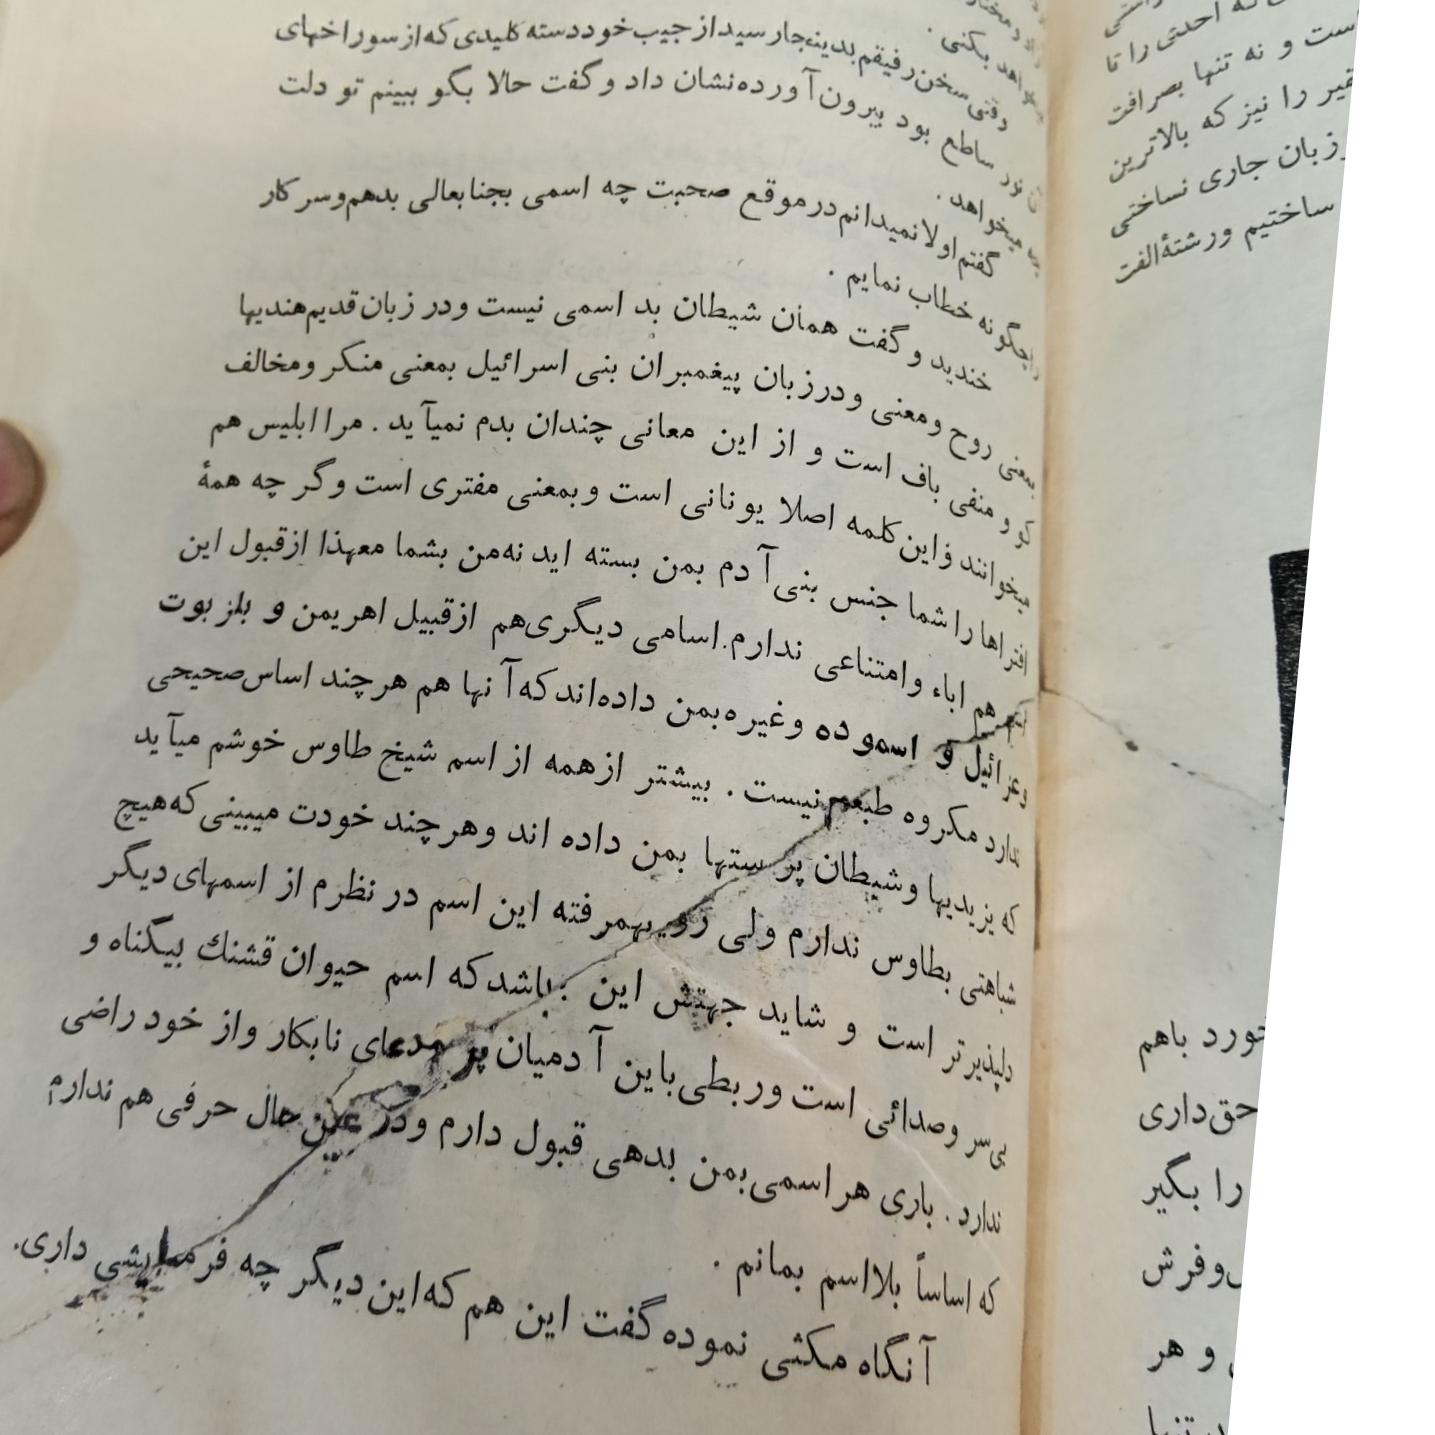 میخواهد بکنی .
وقتی سخن رفیقم بدینجا رسید از جیب خود دسته کلیدی که از سوراخهای
آن نور ساطع بود بیرون آورده نشان داد و گفت حالا بگو ببینم تو دلت
چه میخواهد .
گفتم اولا نمیدانم در موقع صحبت چه اسمی بجنابعالی بدهم و سرکار
را چگونه خطاب نمایم .
خندید و گفت همان شیطان بد اسمی نیست و در زبان قدیم هندیها
بمعنی روح و معنی و در زبان پیغمبران بنی اسرائیل بمعنی منکر و مخالف
گو و منفی باف است و از این معانی چندان بدم نمیآید . مرا ابلیس هم
میخوانند و این کلمه اصلا یونانی است و بمعنی مفتری است و گر چه همهٔ
افتراها را شما جنس بنی آدم بمن بسته اید نه من بشما معهذا از قبول این
اسم هم اباء و امتناعی ندارم. اسامی دیگری هم از قبیل اهریمن و بلز بوت
و عزائیل و اسموده و غیره بمن داده‌اند که آنها هم هر چند اساس صحیحی
ندارد مکروه طبعم نیست . بیشتر از همه از اسم شیخ طاوس خوشم میآید
که یزیدیها و شیطان پرستها بمن داده اند و هر چند خودت میبینی که هیچ
شباهتی بطاوس ندارم ولی رویهمرفته این اسم در نظرم از اسمهای دیگر
دلپذیرتر است و شاید جهتش این باشد که اسم حیوان قشنك بیگناه و
بی سر و صدائی است و ربطی باین آدمیان پر مدعای نابکار و از خود راضی
ندارد . باری هر اسمی بمن بدهی قبول دارم و در عین حال حرفی هم ندارم
که اساساً بلا اسم بمانم .
آنگاه مکثی نموده گفت این هم که این دیگر چه فرمایشی داری.
که احدی را تا
ست و نه تنها بصرافت
را نیز که بالاترین
زبان جاری نساختی
ساختیم و رشتهٔ الفت
خورد باهم
حق داری
را بگیر
و فرش
و هر
تنها